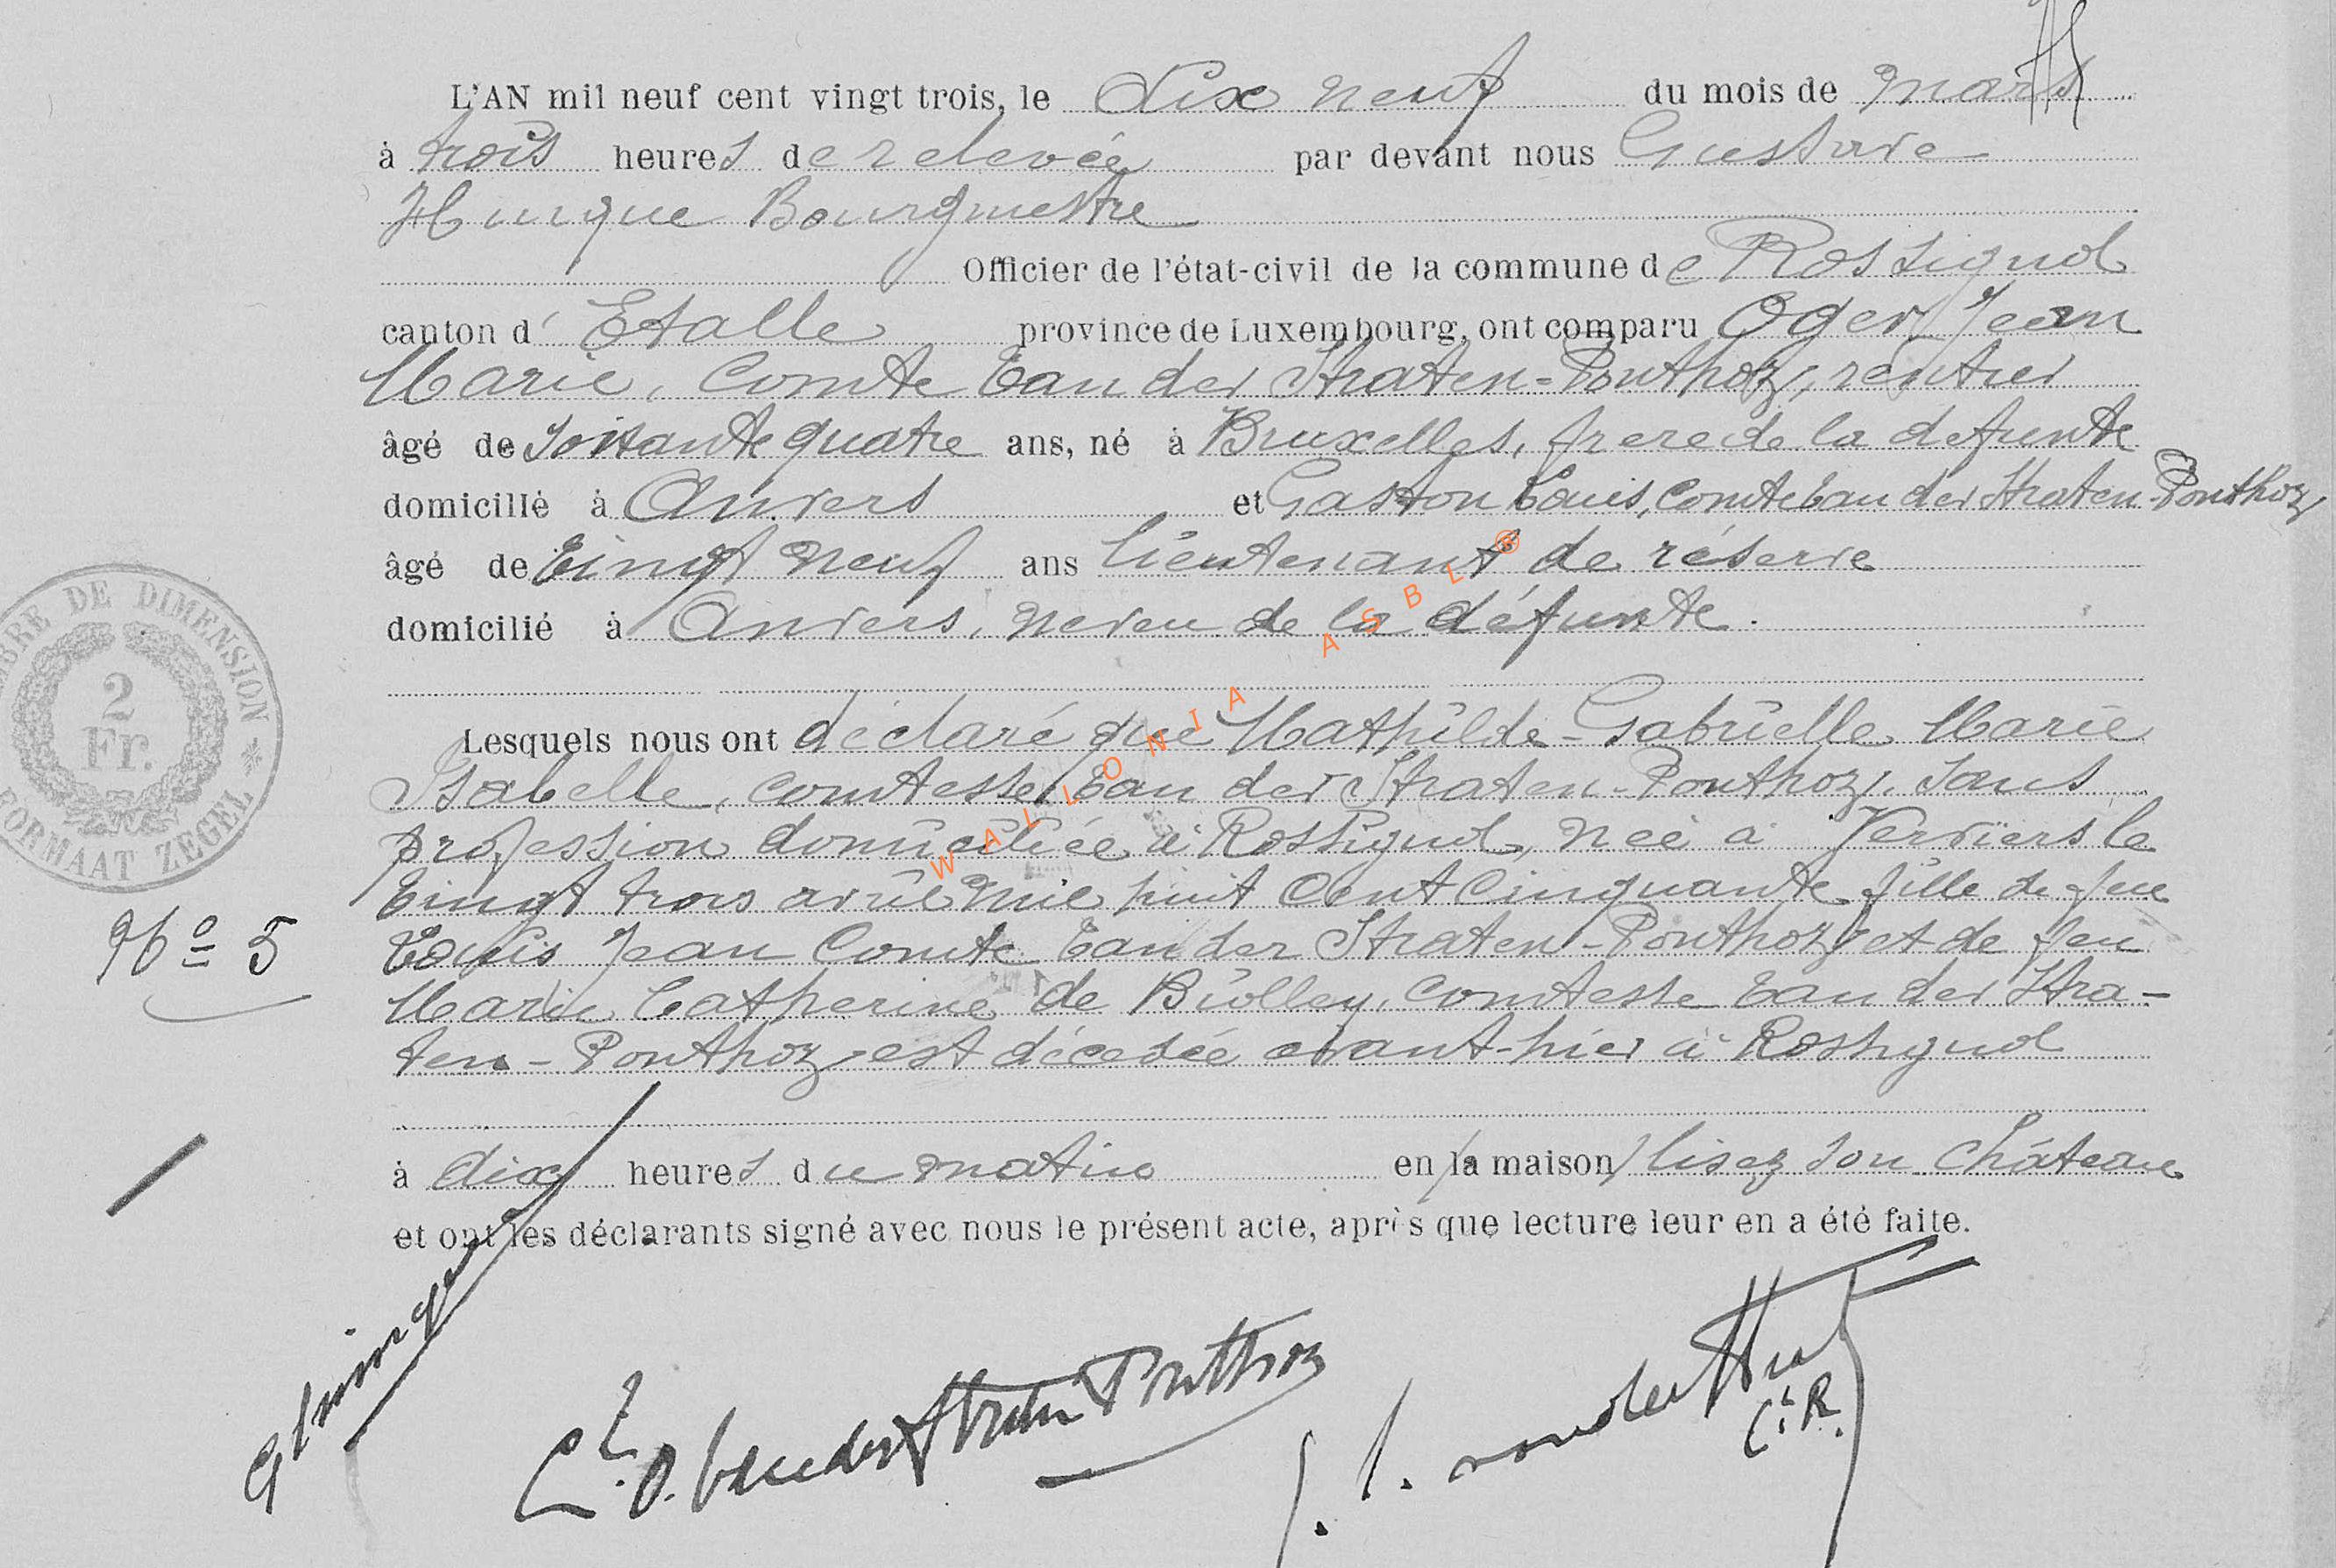 L'AN mil neuf cent vingt trois, le Dix neuf du mois de Mars
à trois heures de relevée par devant nous Gustave
Hurique Bourgmestre
Officier de l'état-civil de la commune de Rossignol
canton d'Etalle province de Luxembourg, ont comparu Oger Jean
Marie, Comte Van der Straten-Ponthoz, rentier
âgé de soixante quatre ans, né à Bruxelles, frere de la defunte
domicilié à Anvers et Gaston Louis, Comte Van der Straten-Ponthoz
âgé de Vingt neuf ans lieutenant de réserve
domicilié à Anvers, neveu de la défunte.
Lesquels nous ont déclaré que Mathilde-Gabrielle Marie
Isabelle, comtesse Van der Straten-Ponthoz, sans
profession domiciliée à Rossignol, née à Verviers le
Vingt trois avril mil huit Cent Cinquante fille de feu
Louis Jean Comte Van der Straten-Ponthoz et de feu
Marie Catherine de Biolley, comtesse Van der Stra-
ten-Ponthoz est décedée avant-hier à Rossignol
à dix heures du matin en la maison lisez son Château
et ont les déclarants signé avec nous le présent acte, après que lecture leur en a été faite.
TIMBRE DE DIMENSION
2
Fr.
FORMAAT ZEGEL
No 5
Ct. O. van der Straten Ponthoz
WALLONIA ASBL ®